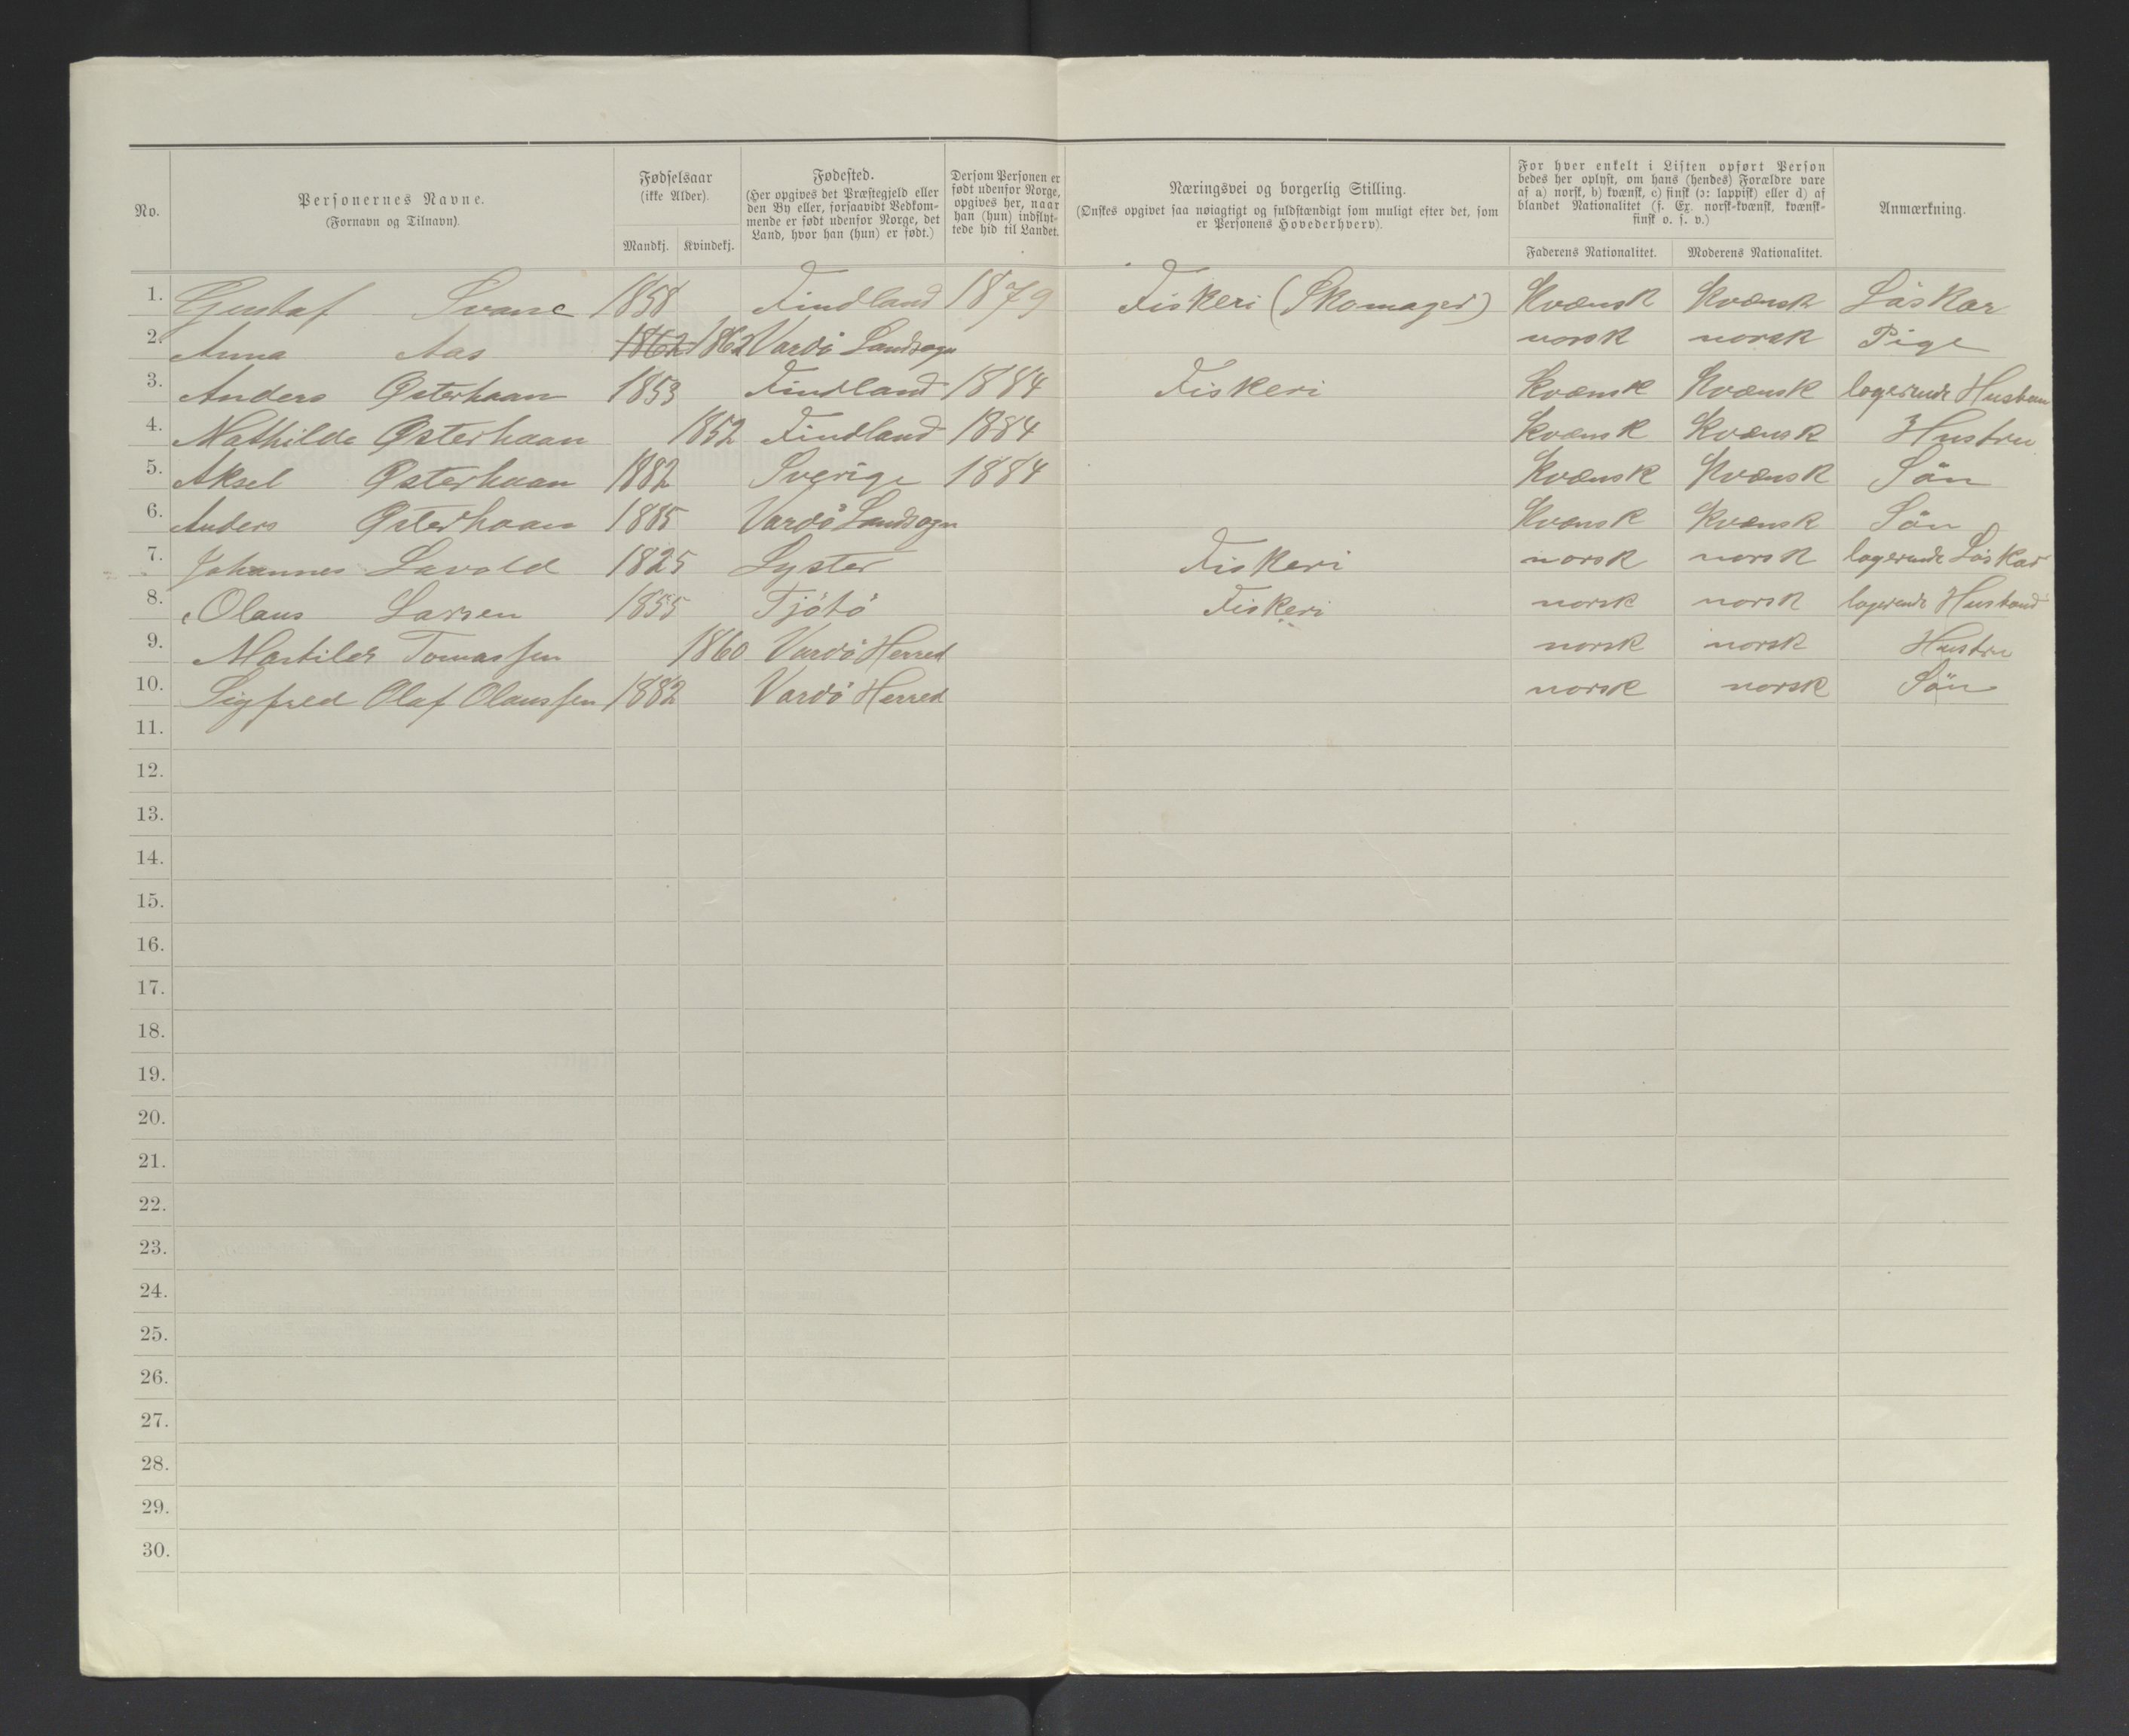 No.
Personernes Navne.
(Fornavn og Tilnavn).
Fødselsaar
(ikke Alder).
Mandkj. Kvindekj.
Fødested.
(Her opgives det Præstegjeld eller
den By eller, forsaavidt Vedkom-
mende er født udenfor Norge, det
Land, hvor han (hun) er født.)
Dersom Personen er
født udenfor Norge,
opgives her, naar
han (hun) indflyt-
tede hid til Landet.
Næringsvei og borgerlig Stilling.
(Ønskes opgivet saa nøiagtigt og fuldstændigt som muligt efter det, som
er Personens Hovederhverv).
For hver enkelt i Listen opført Person
bedes her oplyst, om hans (hendes) Forældre vare
af a) norsk, b) kvænsk, c) finsk (ɔ: lappisk) eller d) af
blandet Nationalitet (f. Ex. norsk-kvænsk, kvænsk-
finsk o. s. v.)
Faderens Nationalitet. Moderens Nationalitet.
Anmærkning.
1. Gustaf Svane 1858 Findland 1879 Fiskeri (Skomager) Kvænsk Kvænsk Løskar
2. Anna Aas 1862 1862 Vardö Landsogn norsk norsk Pige
3. Anders Østerhaan 1853 Findland 1884 Fiskeri Kvænsk Kvænsk logerende
4. Mathilde Østerhaan 1852 Findland 1884 Kvænsk Kvænsk Hustru
5. Aksel Østerhaan 1882 Sverige 1884 Kvænsk Kvænsk Sön
6. Anders Østerhaan 1885 Vardö Landsogn Kvænsk Kvænsk Sön
7. Johannes Lavold 1825 Lyster Fiskeri norsk norsk logerende Löskar
8. Olaus Larsen 1855 Tjötö Fiskeri norsk norsk logerende Husband
9. Tomassen 1860 Vardö Herred norsk norsk Hustru
10. Sigfred Olaf Olaussen 1882 Vardö Herred norsk norsk Sön
11.
12.
13.
14.
15.
16.
17.
18.
19.
20.
21.
22.
23.
24.
25.
26.
27.
28.
29.
30.